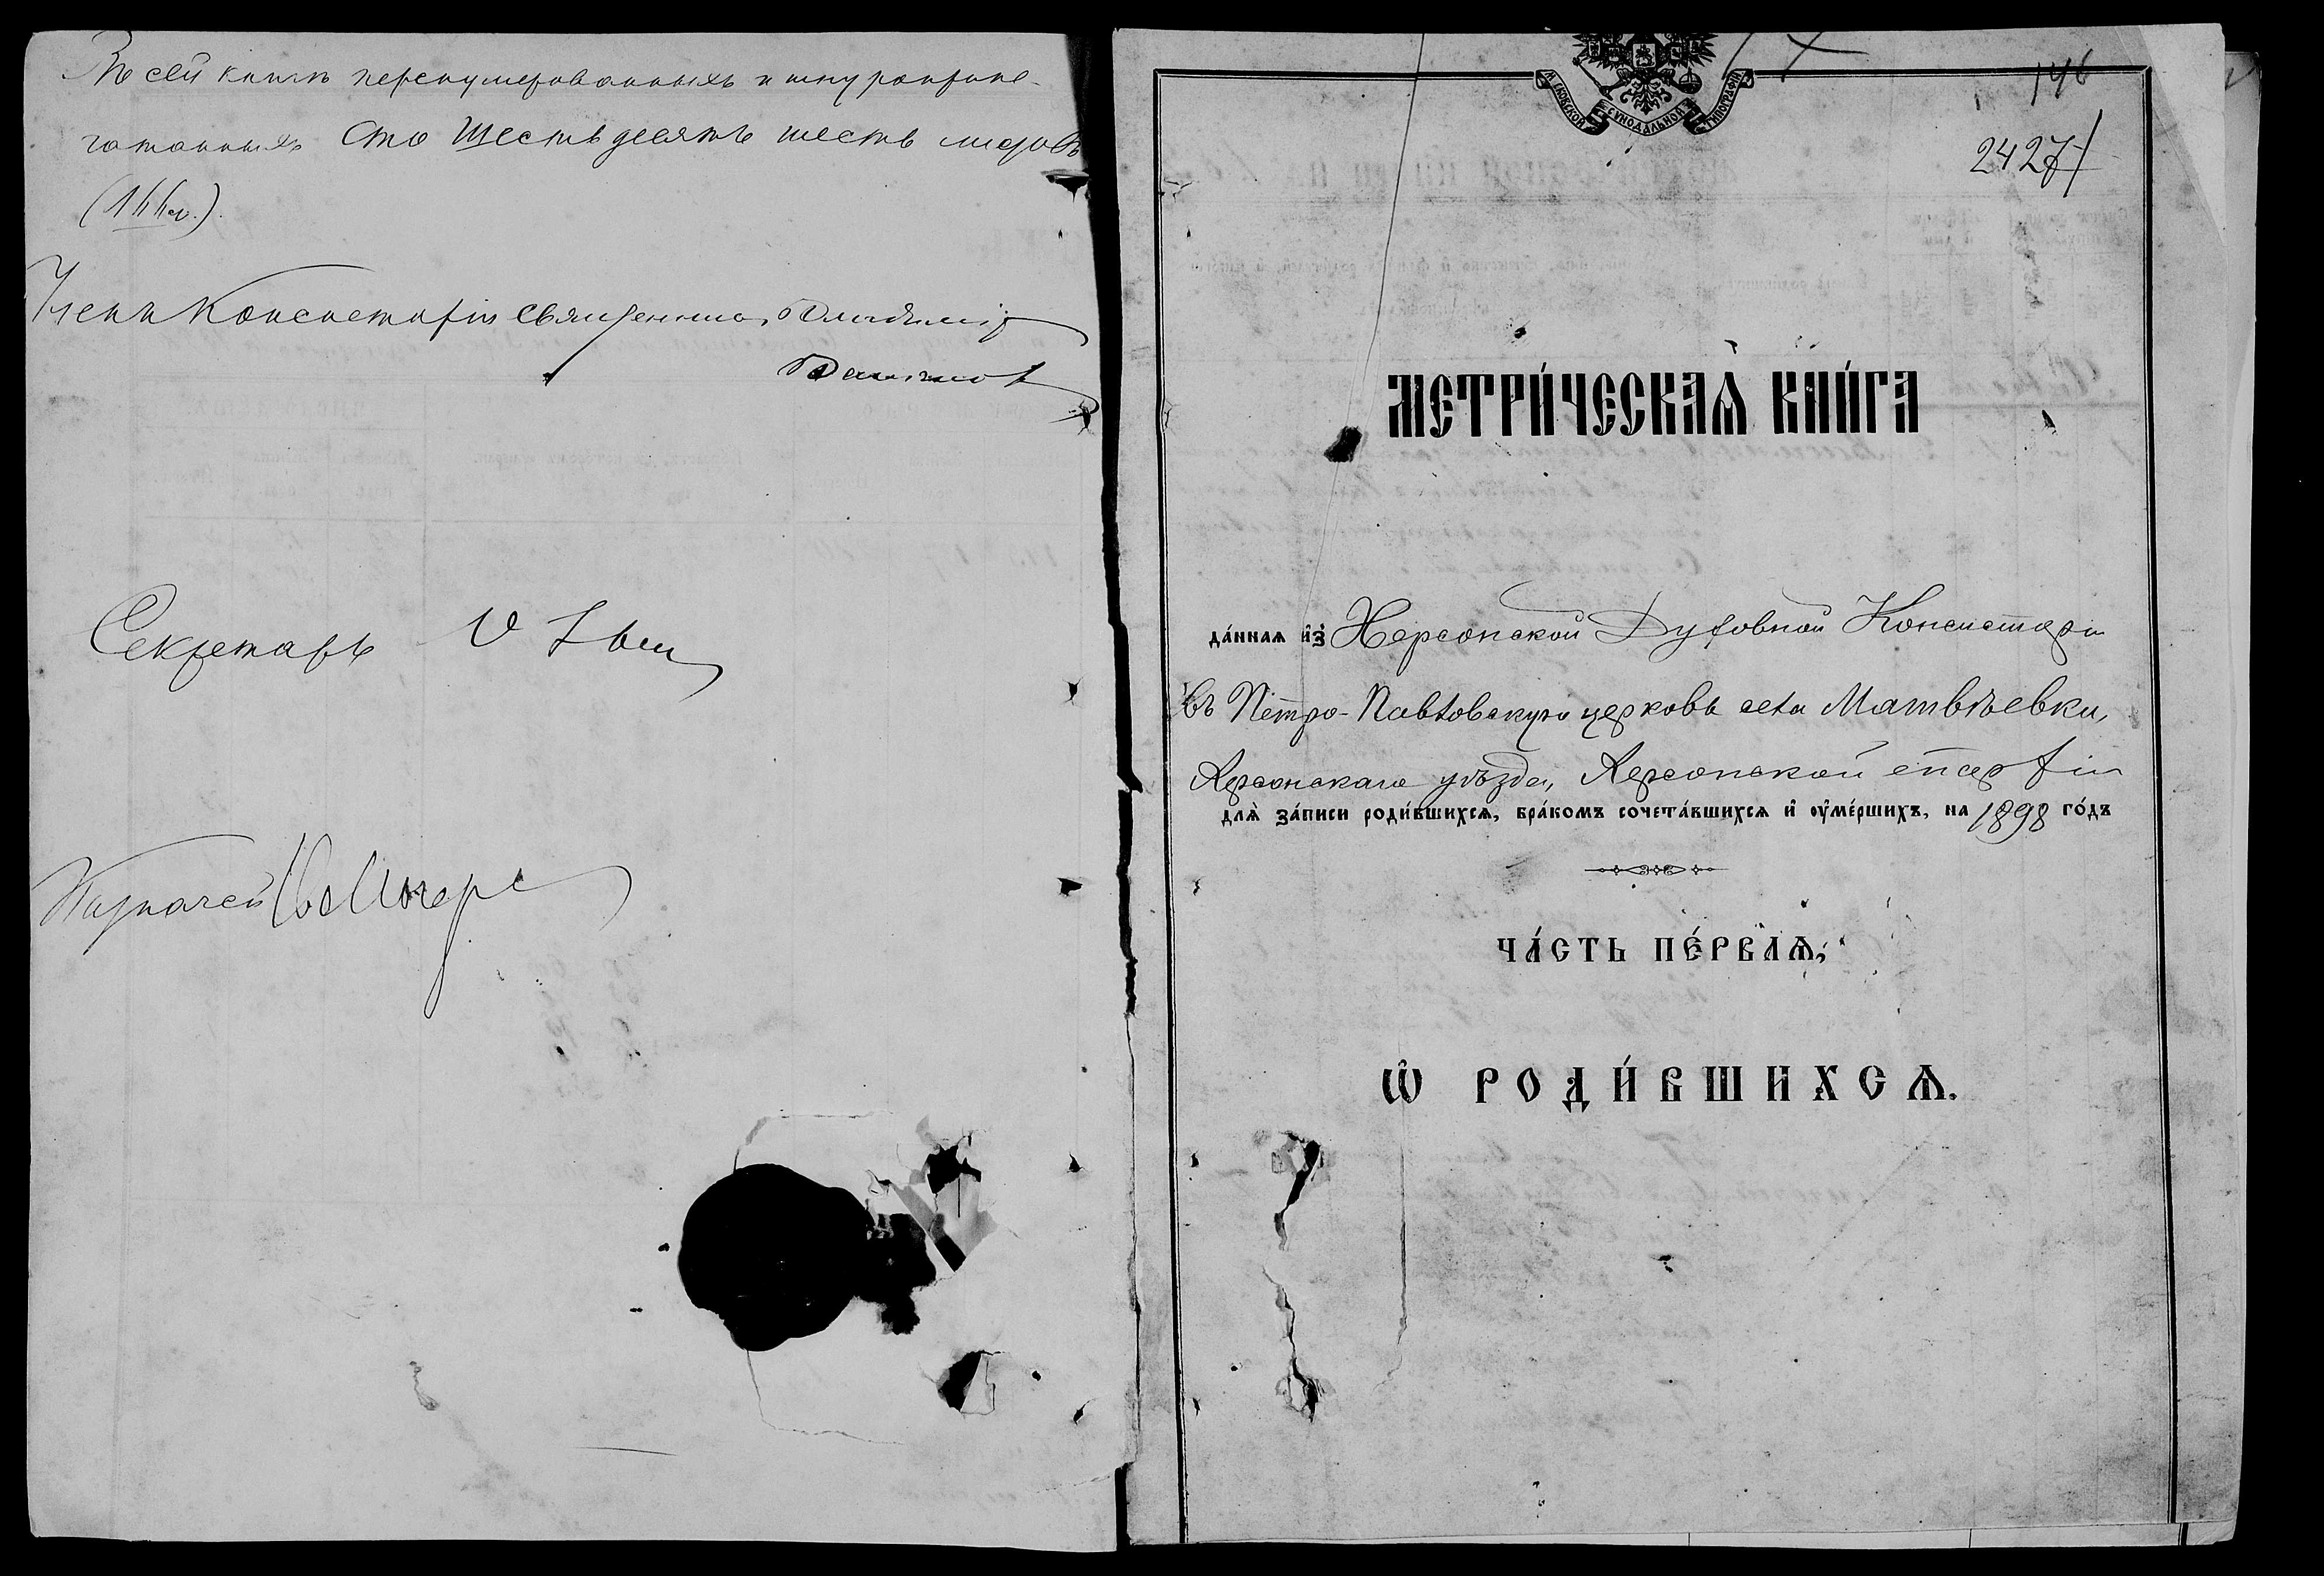 Въ сей книгѣ перенумерованныхъ и шнуроприпе-
чатанныхъ Сто Шестьдесятъ шесть листовъ
(166 л.).
Членъ Консисторіи Священникъ Владиміръ
Секретарь
Казначей
МОСКОВСКОЙ СѴНОДАЛЬНОЙ ТИПОГРАФІИ
146
2427
МЕТРИ́ЧЕСКАѦ КНИ́ГА
да́ннаѧ и҆з̾ Херсонской Духовной Консисторіи
въ Петро-Павловскую церковь села Матвѣевки,
Херсонскаго уѣзда, Херсонской епархіи
длѧ̀ за́писи роди́вшихсѧ, бра́комъ сочета́вшихсѧ и҆ ᲂу҆ме́ршихъ, на 1898 го́дъ
ЧА́СТЬ ПЕ́РВАѦ,
Ѡ҆ РОДИ́ВШИХСѦ.